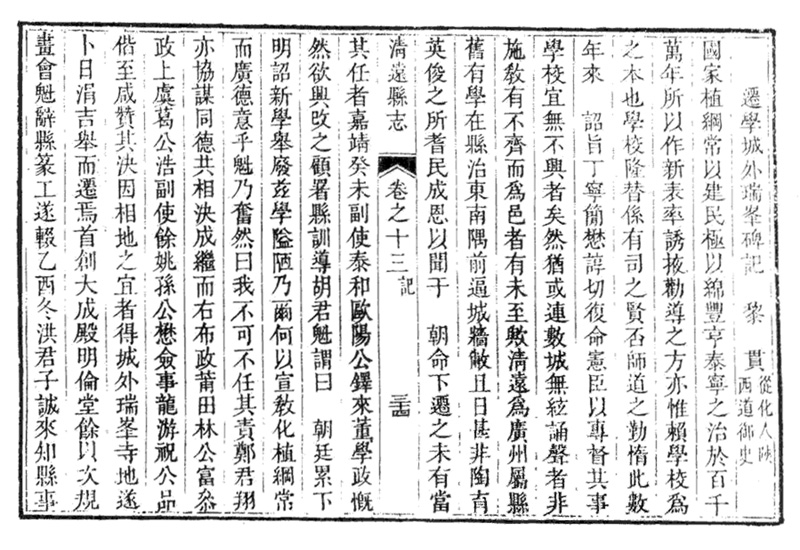 遷學城外瑞峯碑記 黎貫 從化人陝西道御史
國家植綱常以建民極以綿豐亨泰寧之治於百千
萬年所以作新表率誘掖勸導之方亦惟賴學校爲
之本也學校隆替係有司之賢否師道之勤惰此數
年來 詔旨丁寧簡懋諄切復命憲臣以專督其事
學校宜無不興者矣然猶或連數城無絃誦聲者非
施敎有不齊而爲邑者有未至歟清遠爲廣州屬縣
舊有學在縣治東南隅前逼城牆敝且日甚非陶育
英俊之所耆民成恩以聞于 朝命下遷之未有當
清遠縣志 卷之十三 記 三十四
其任者嘉靖癸未副使泰和歐陽公鐸來董學政慨
然欲興改之顧署縣訓導胡君魁謂曰 朝廷累下
明詔新學舉廢茲學隘陋乃爾何以宣敎化植綱常
而廣德意乎魁乃奮然曰我不可不任其責鄭君翔
亦協謀同德共相決成繼而右布政莆田林公富叅
政上虞葛公浩副使餘姚孫公懋僉事龍游祝公品
偕至咸贊其決因相地之宜者得城外瑞峯寺地遂
卜日涓吉舉而遷焉首創大成殿明倫堂餘以次規
畫會魁辭縣篆工遂輟乙酉冬洪君子誠來知縣事